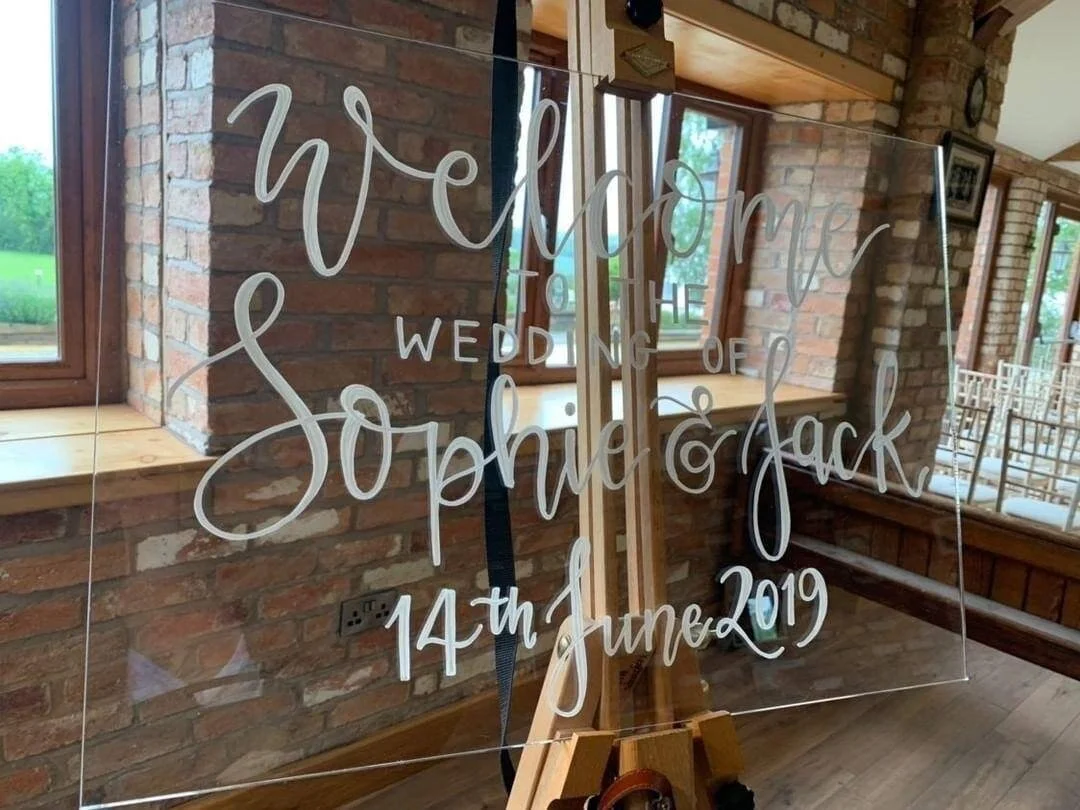 Welcome
TO THE
WEDDING OF
Sophie & Jack
14th June 2019